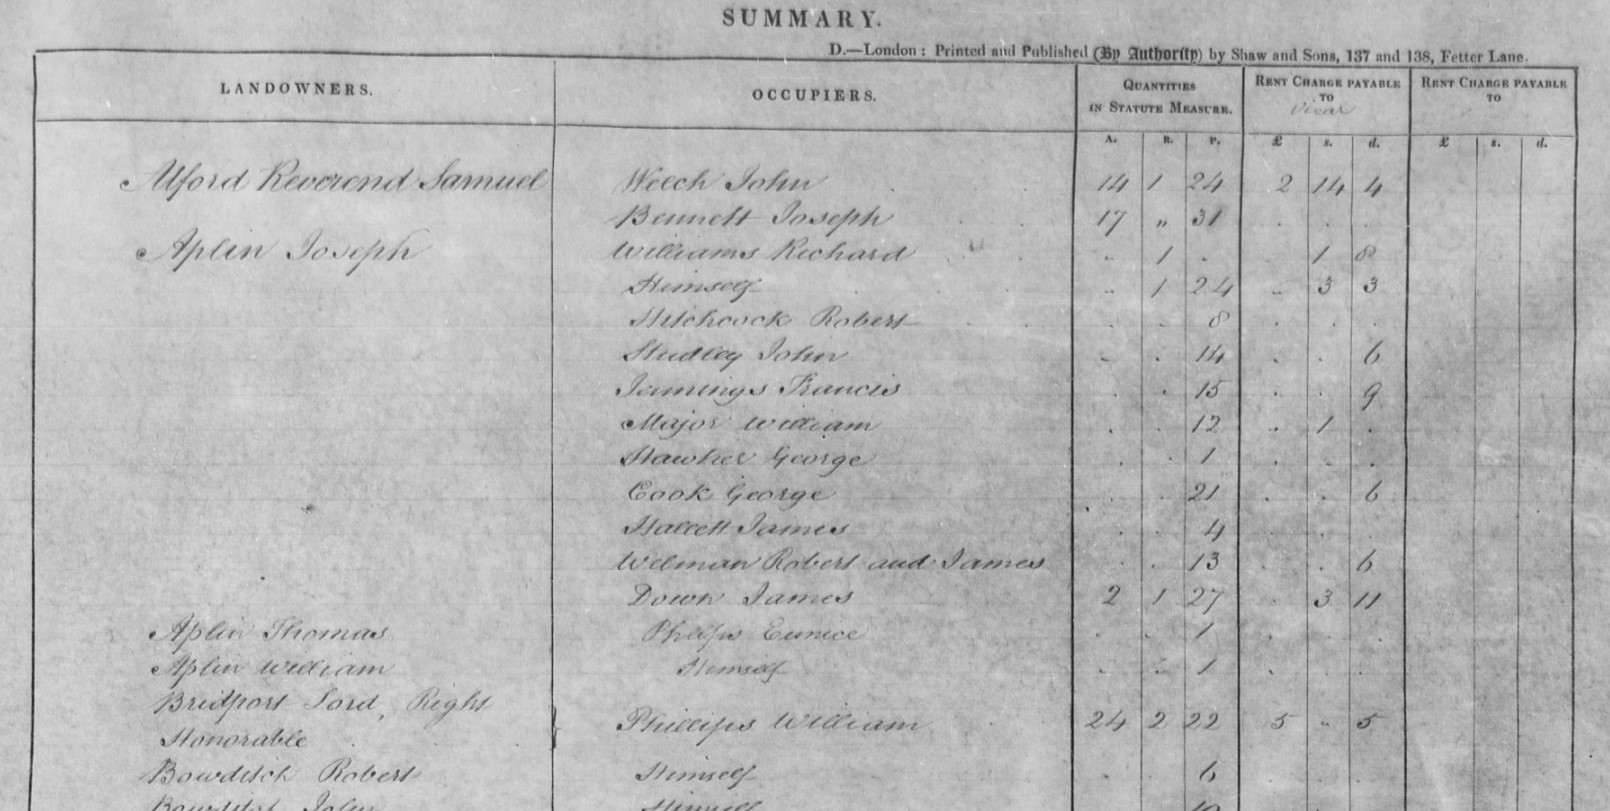 SUMMARY.
D.—London: Printed and Published (By Authority) by Shaw and Sons, 137 and 138, Fetter Lane.
LANDOWNERS. OCCUPIERS. QUANTITIES IN STATUTE MEASURE. RENT CHARGE PAYABLE TO Vicar RENT CHARGE PAYABLE TO
A. R. P. £ s. d. £ s. d.
Alford Reverend Samuel Welch John 14 1 24 2 14 4
Bennett Joseph 17 „ 31
Aplin Joseph Williams Richard 1 . 1 8
Himself 1 24 „ 3 3
Hitchcock Robert 8
Studley John 14 6
Jennings Francis 15 9
Major William 12 1 .
Hawker George 1
Cook George 21 6
Hallett James 4
Welman Robert and James 13 6
Down James 2 1 27 3 11
Aplin Thomas Phelps Eunice 1
Aplin William Himself 1
Bridport Lord, Right
Honorable Phillips William 24 2 22 5 „ 5
Bowditch Robert Himself 6
Bowditch John Himself